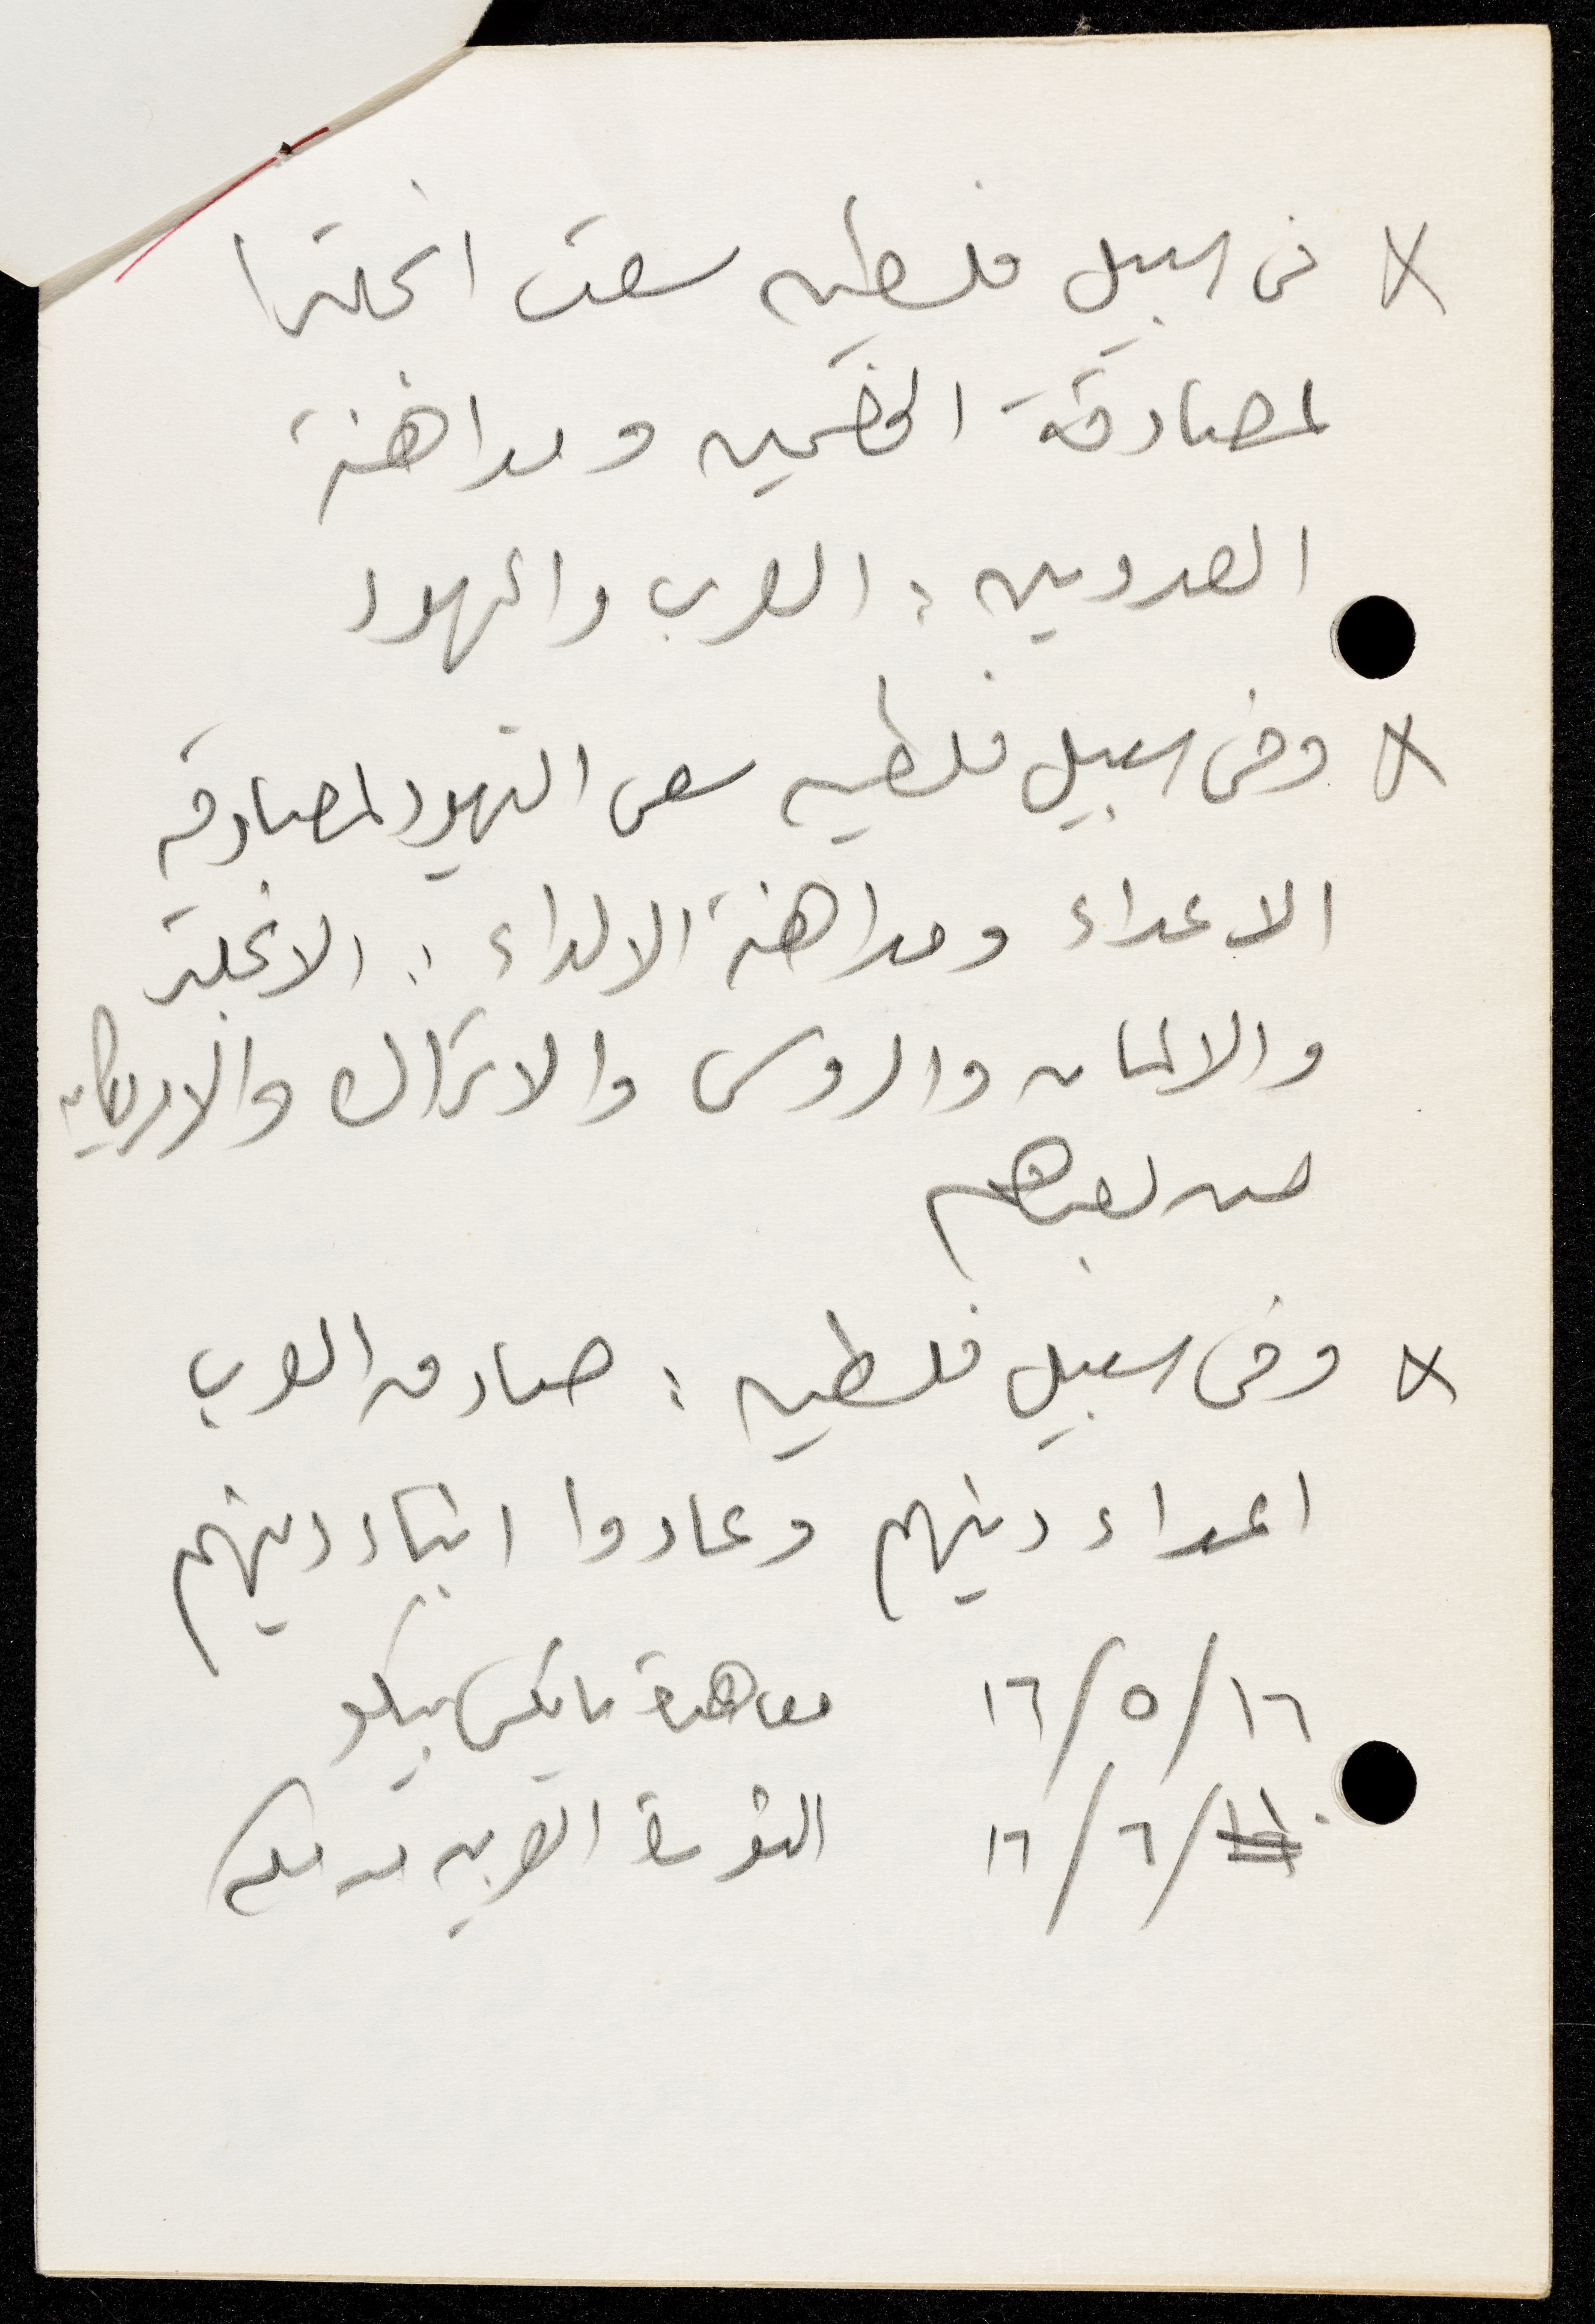 في سبيل فلسطين سعت انجلترا
لمصادقة الخصمين ومداهنة
العدوين : العرب واليهود
وفي سبيل فلسطين سعى اليهود لمصادقة
الاعداء ومداهنة الالداء : الانجليز
والالمان والروس والاتراك والامريكان
من بعدهم
وفي سبيل فلسطين : صادق العرب
اعداء دينهم وعادوا ابناء دينهم
١٦/٥/١٦ معاهدة سايكس بيكو
/٦/١٦ الثورة العربية من مكة